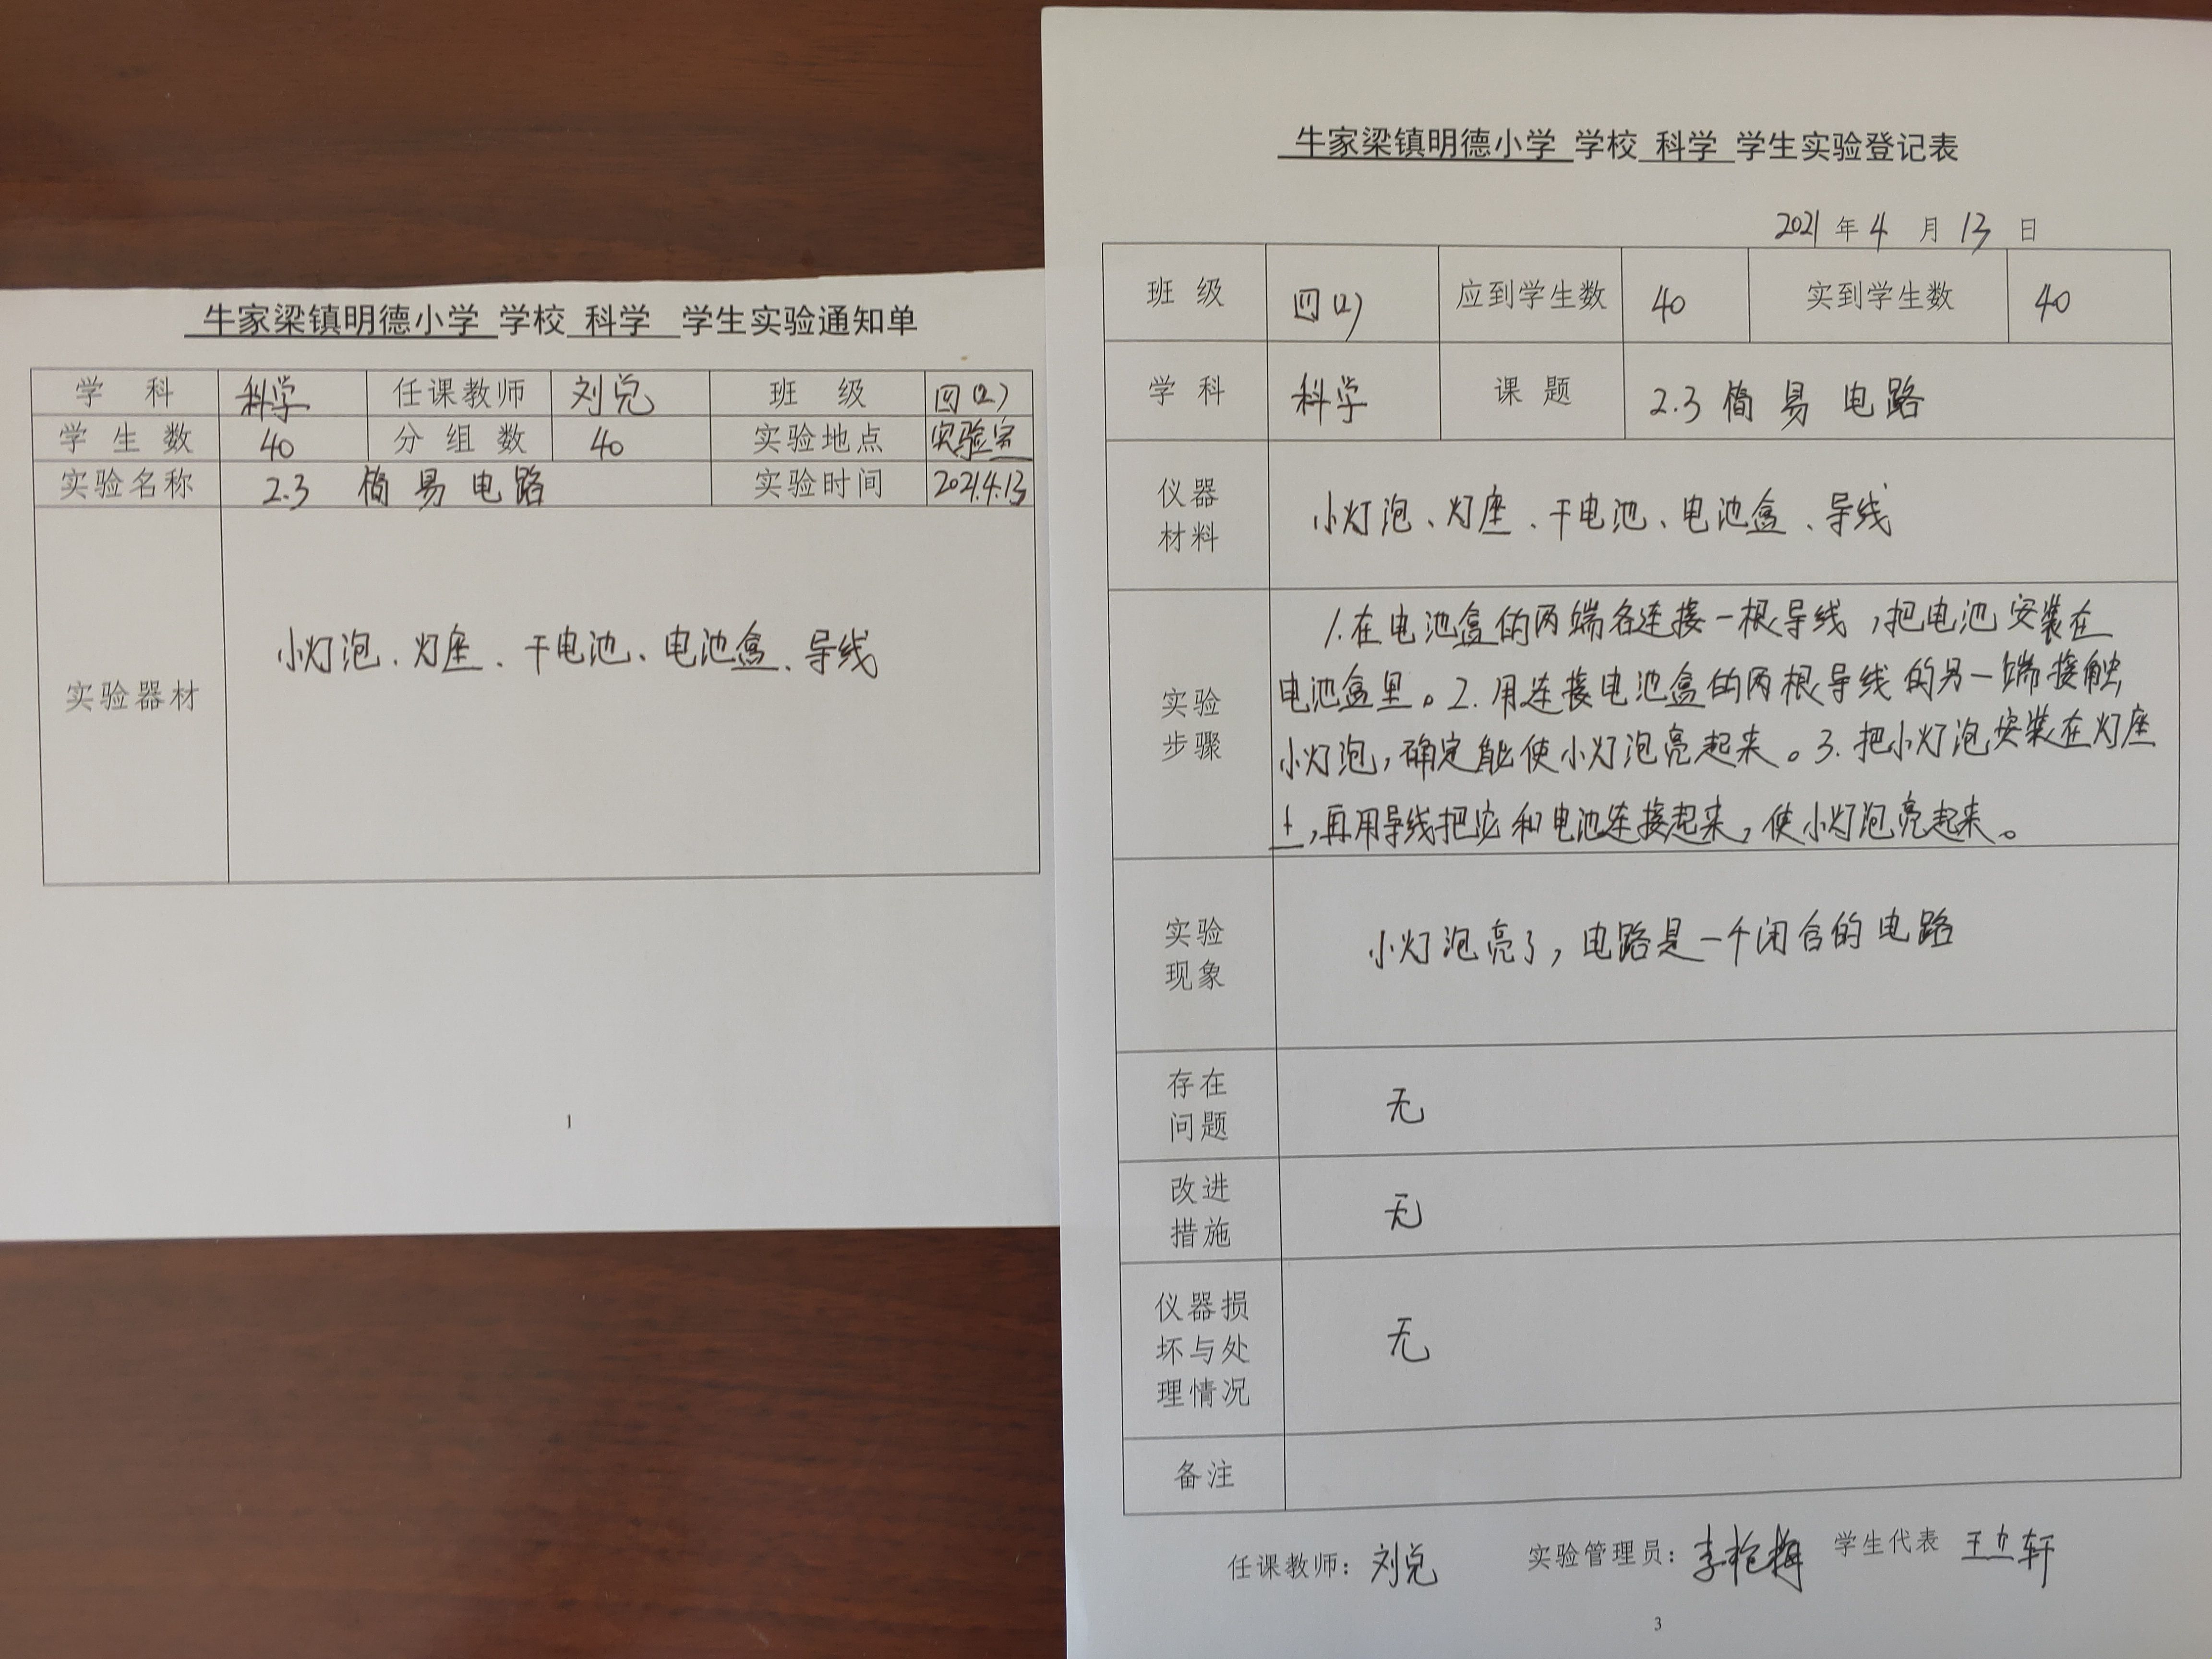 牛家梁镇明德小学 学校 科学 学生实验通知单
学 科 科学 任课教师 刘兑 班 级 四(2)
学 生 数 40 分 组 数 40 实验地点 实验室
实验名称 2.3 简易电路 实验时间 2021.4.13
实验器材 小灯泡、灯座、干电池、电池盒、导线
1
牛家梁镇明德小学 学校 科学 学生实验登记表
2021 年 4 月 13 日
班 级 四(2) 应到学生数 40 实到学生数 40
学 科 科学 课 题 2.3 简易电路
仪器
材料
小灯泡、灯座、干电池、电池盒、导线
实验
步骤
1.在电池盒的两端各连接一根导线,把电池安装在
电池盒里。2.用连接电池盒的两根导线的另一端接触
小灯泡,确定能使小灯泡亮起来。3.把小灯泡安装在灯座
上,再用导线把它和电池连接起来,使小灯泡亮起来。
实验
现象
小灯泡亮了,电路是一个闭合的电路
存在
问题
无
改进
措施
无
仪器损
坏与处
理情况
无
备注
任课教师: 刘兑 实验管理员: 李艳梅 学生代表 王立轩
3